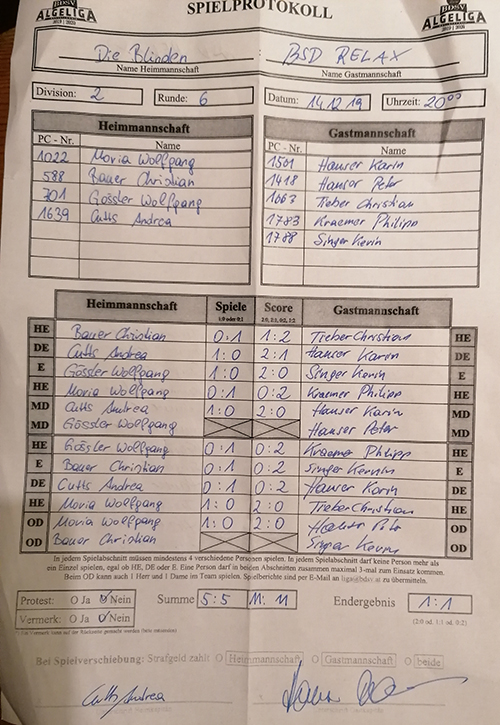 BDSV
ALGELIGA
2019 | 2020
SPIELPROTOKOLL
BDSV
ALGELIGA
2019 | 2020
Die Blinden : BSD RELAX
Name Heimmannschaft Name Gastmannschaft
Division: 2 Runde: 6 Datum: 14.12.19 Uhrzeit: 20⁰⁰
Heimmannschaft Gastmannschaft
PC - Nr. Name PC - Nr. Name
1022 Moria Wolfgang 1501 Hauser Karin
588 Bauer Christian 1418 Hauser Peter
701 Gössler Wolfgang 1063 Tieber Christian
1639 Cutts Andrea 1783 Kraemer Philipp
1788 Singer Kevin
Heimmannschaft Spiele Score Gastmannschaft
1:0 oder 0:1 2:0, 2:1, 0:2, 1:2
HE Bauer Christian 0:1 1:2 Tieber Christian HE
DE Cutts Andrea 1:0 2:1 Hauser Karin DE
E Gössler Wolfgang 1:0 2:0 Singer Kevin E
HE Moria Wolfgang 0:1 0:2 Kraemer Philipp HE
MD Cutts Andrea 1:0 2:0 Hauser Karin MD
MD Gössler Wolfgang Hauser Peter MD
HE Gössler Wolfgang 0:1 0:2 Kraemer Philipp HE
E Bauer Christian 0:1 0:2 Singer Kevin E
DE Cutts Andrea 0:1 0:2 Hauser Karin DE
HE Moria Wolfgang 1:0 2:0 Tieber Christian HE
OD Moria Wolfgang 1:0 2:0 Hauser Peter OD
OD Bauer Christian Singer Kevin OD
In jedem Spielabschnitt müssen mindestens 4 verschiedene Personen spielen. In jedem Spielabschnitt darf keine Person mehr als
ein Einzel spielen, egal ob HE, DE oder E. Eine Person darf in beiden Abschnitten zusammen maximal 3-mal zum Einsatz kommen.
Beim OD kann auch 1 Herr und 1 Dame im Team spielen. Spielberichte sind per E-Mail an liga@bdsv.at zu übermitteln.
Protest: O Ja O Nein Summe 5:5 11:11 Endergebnis 1:1
Vermerk: O Ja O Nein (2:0 od. 1:1 od. 0:2)
Bei Spielverschiebung: Strafgeld zahlt O Heimmannschaft O Gastmannschaft O beide
Cutts Andrea